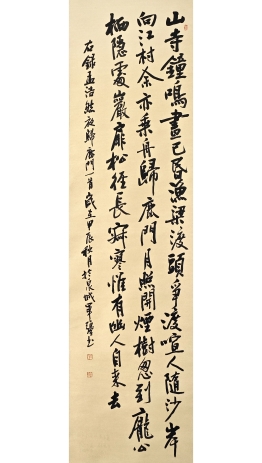 山寺鐘鳴晝已昏漁梁渡頭爭渡喧人隨沙岸
向江村余亦乘舟歸鹿門月照開煙樹忽到龐公
栖隱處巖扉松徑長寂寥惟有幽人自來去
右錄孟浩然夜歸鹿門一首歲在甲辰秋月於泉城